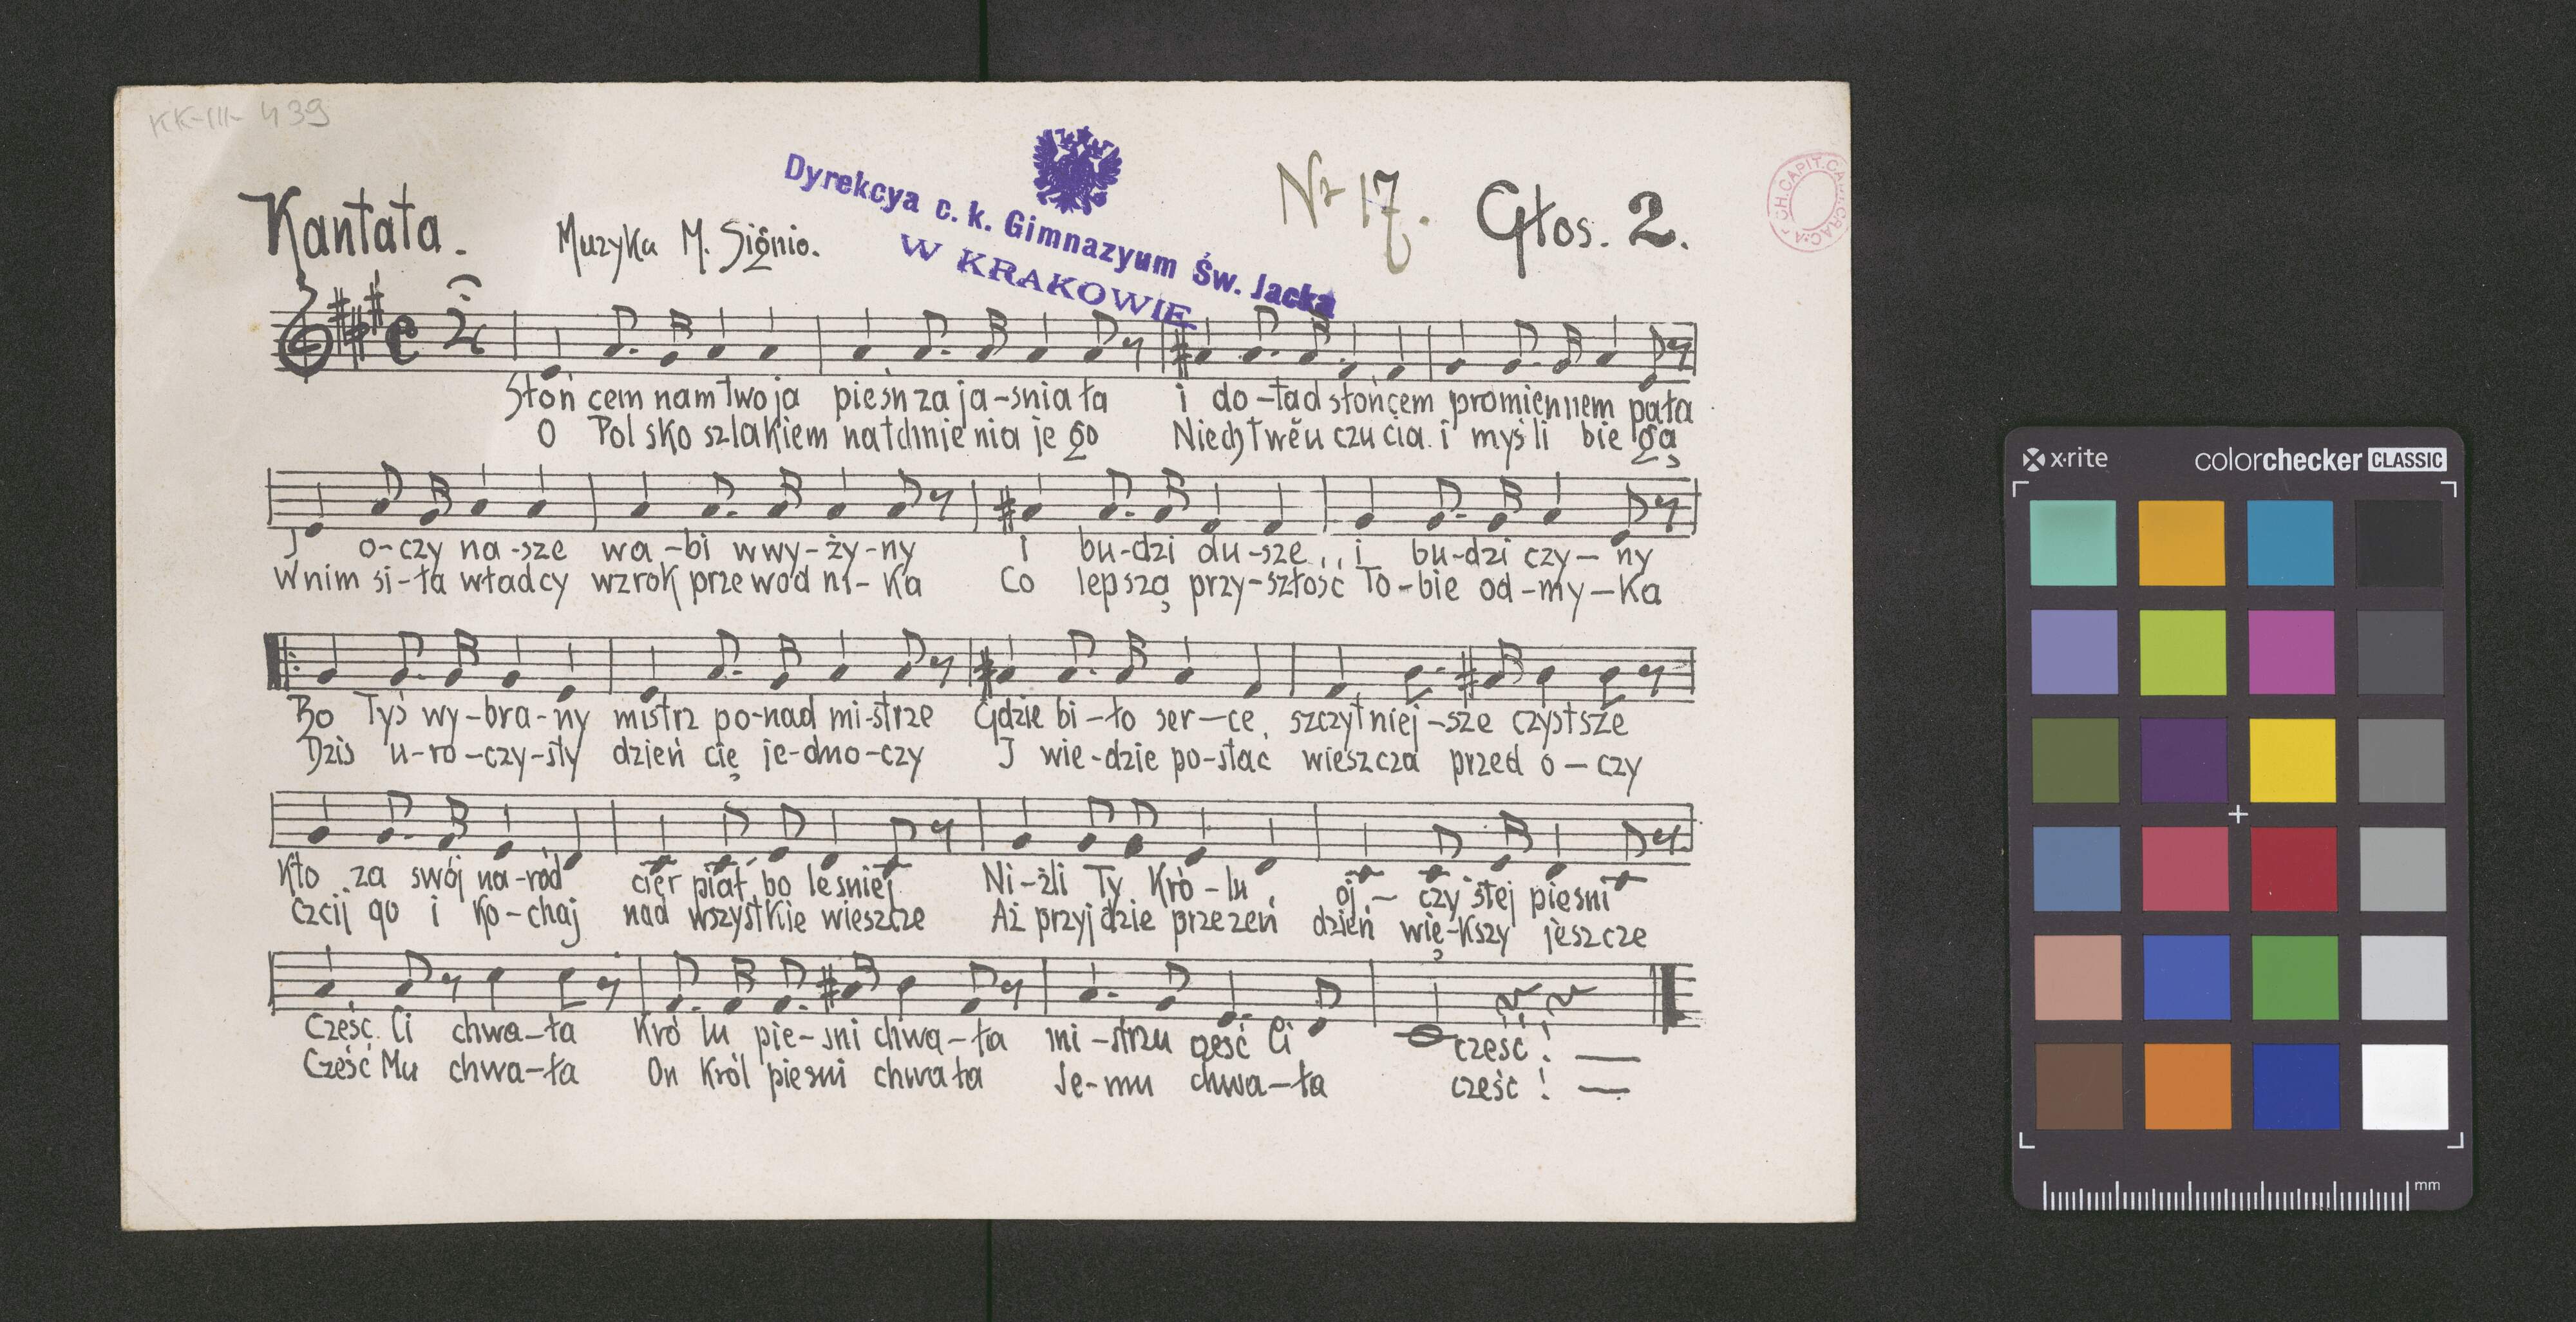 KK-III-439
Kantata.
Muzyka M. Signio.
Dyrekcya c. k. Gimnazyum Św. Jacka
W KRAKOWIE
Nr 17.
Głos. 2.
Słoń cem nam Twoja pieśń za ja-sniała i do-tad słońcem promiennem pała
O Pol sko szlakiem natchnie nia je go Niech twĕ u czu cia i myśli bie gą
I o-czy na-sze wa-bi wwy-ży-ny i bu-dzi du-sze,, i bu-dzi czy-ny
W nim si-ła władcy wzrok prze wod ni-ka Co lepszą przy-szłość To-bie od-my-ka
Bo Tyś wy-bra-ny mistrz po-nad mi-strze Gdzie bi-ło ser-ce, szczytniej-sze czystsze
Dzis u-ro-czy-sty dzień cię je-dno-czy I wie-dzie po-stac wieszcza przed o-czy
Kto za swój na-ród cier piał bo lesniej Ni-żli Ty Kró-lu, oj-czy stej piesni
Czcij go i ko-chaj nad wszystkie wieszcze Aż przyjdzie przezeń dzień wię-kszy jeszcze
Cześć Ci chwa-ła Kró lu pie-śni chwa-ła mi-strzu cześć Ci cześć! —
Cześć Mu chwa-ła On Król piesni chwała Je-mu chwa-ła cześć! —
x-rite
colorchecker CLASSIC
mm